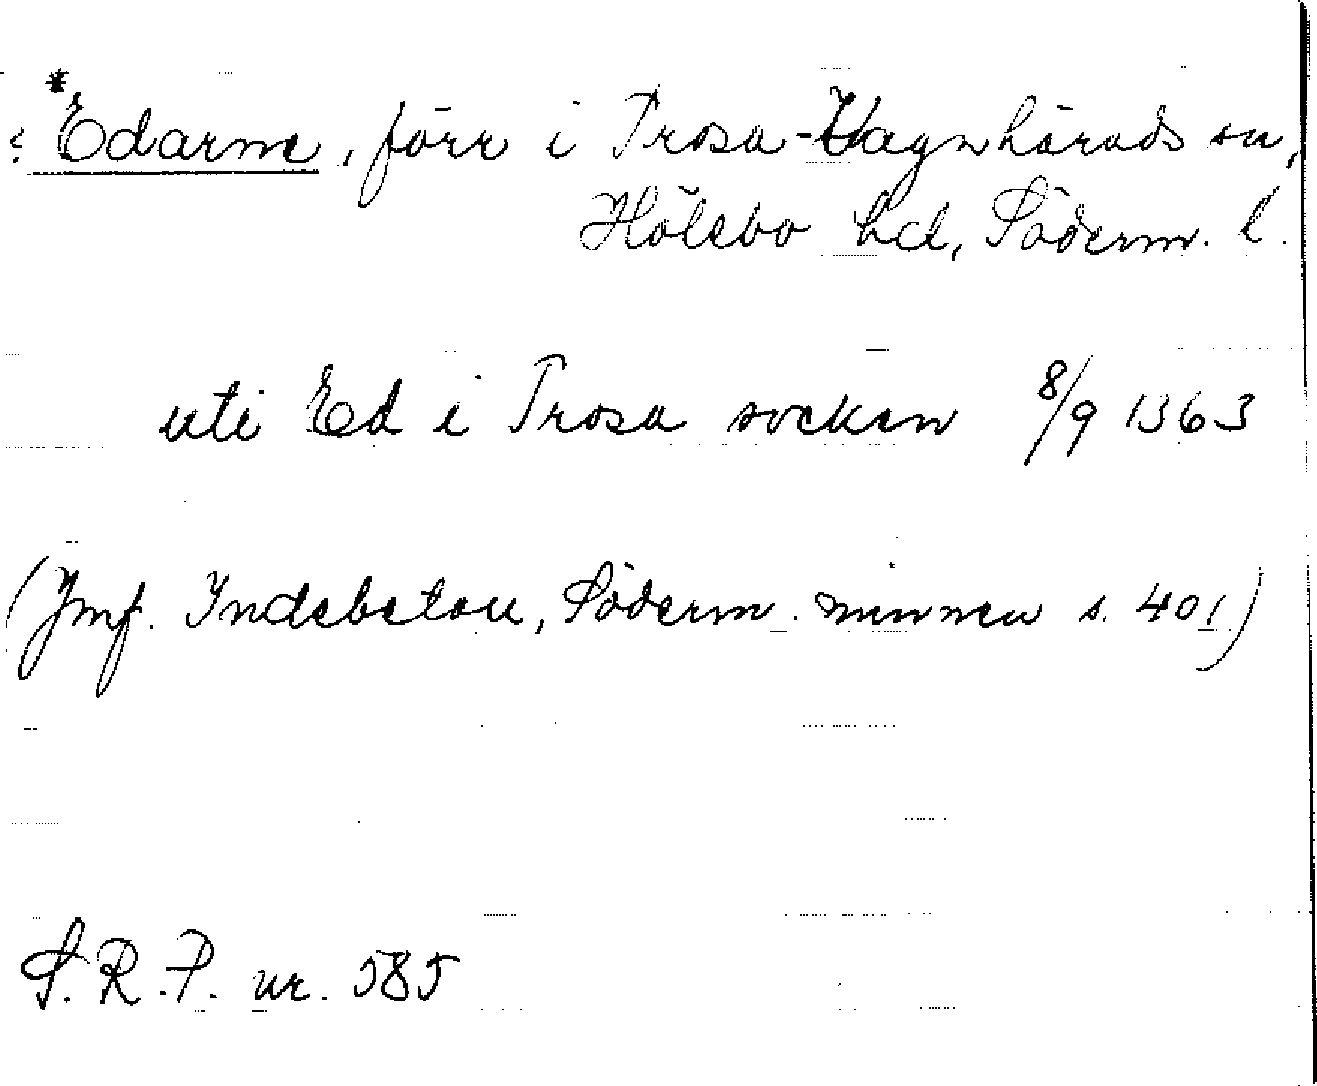 *Edarne, förr i Trosa-Vagnhärads sn,
Hölebo hd, Söderm. l.
uti Ed i Trosa socken 8/9 1363
(Jmf. Indebetou, Söderm. minnen s. 401)
S.R.P. nr. 585